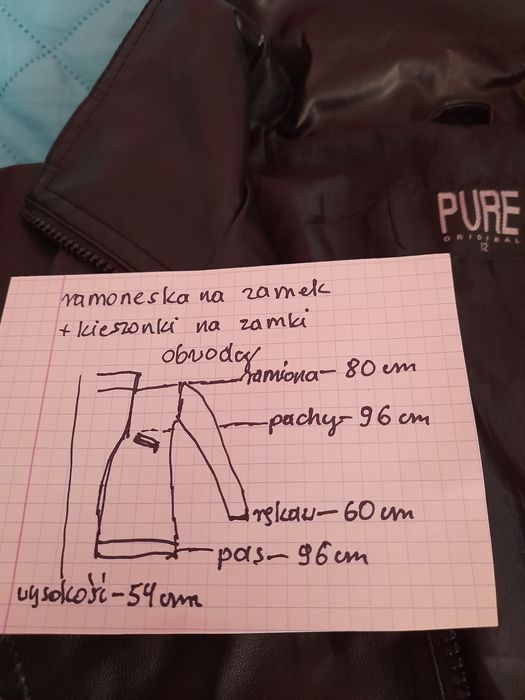 PURE
ORIGINAL
12
ramoneska na zamek
+ kieszonki na zamki
obwody
ramiona - 80 cm
pachy - 96 cm
rękaw - 60 cm
pas - 96 cm
wysokość - 54 cm